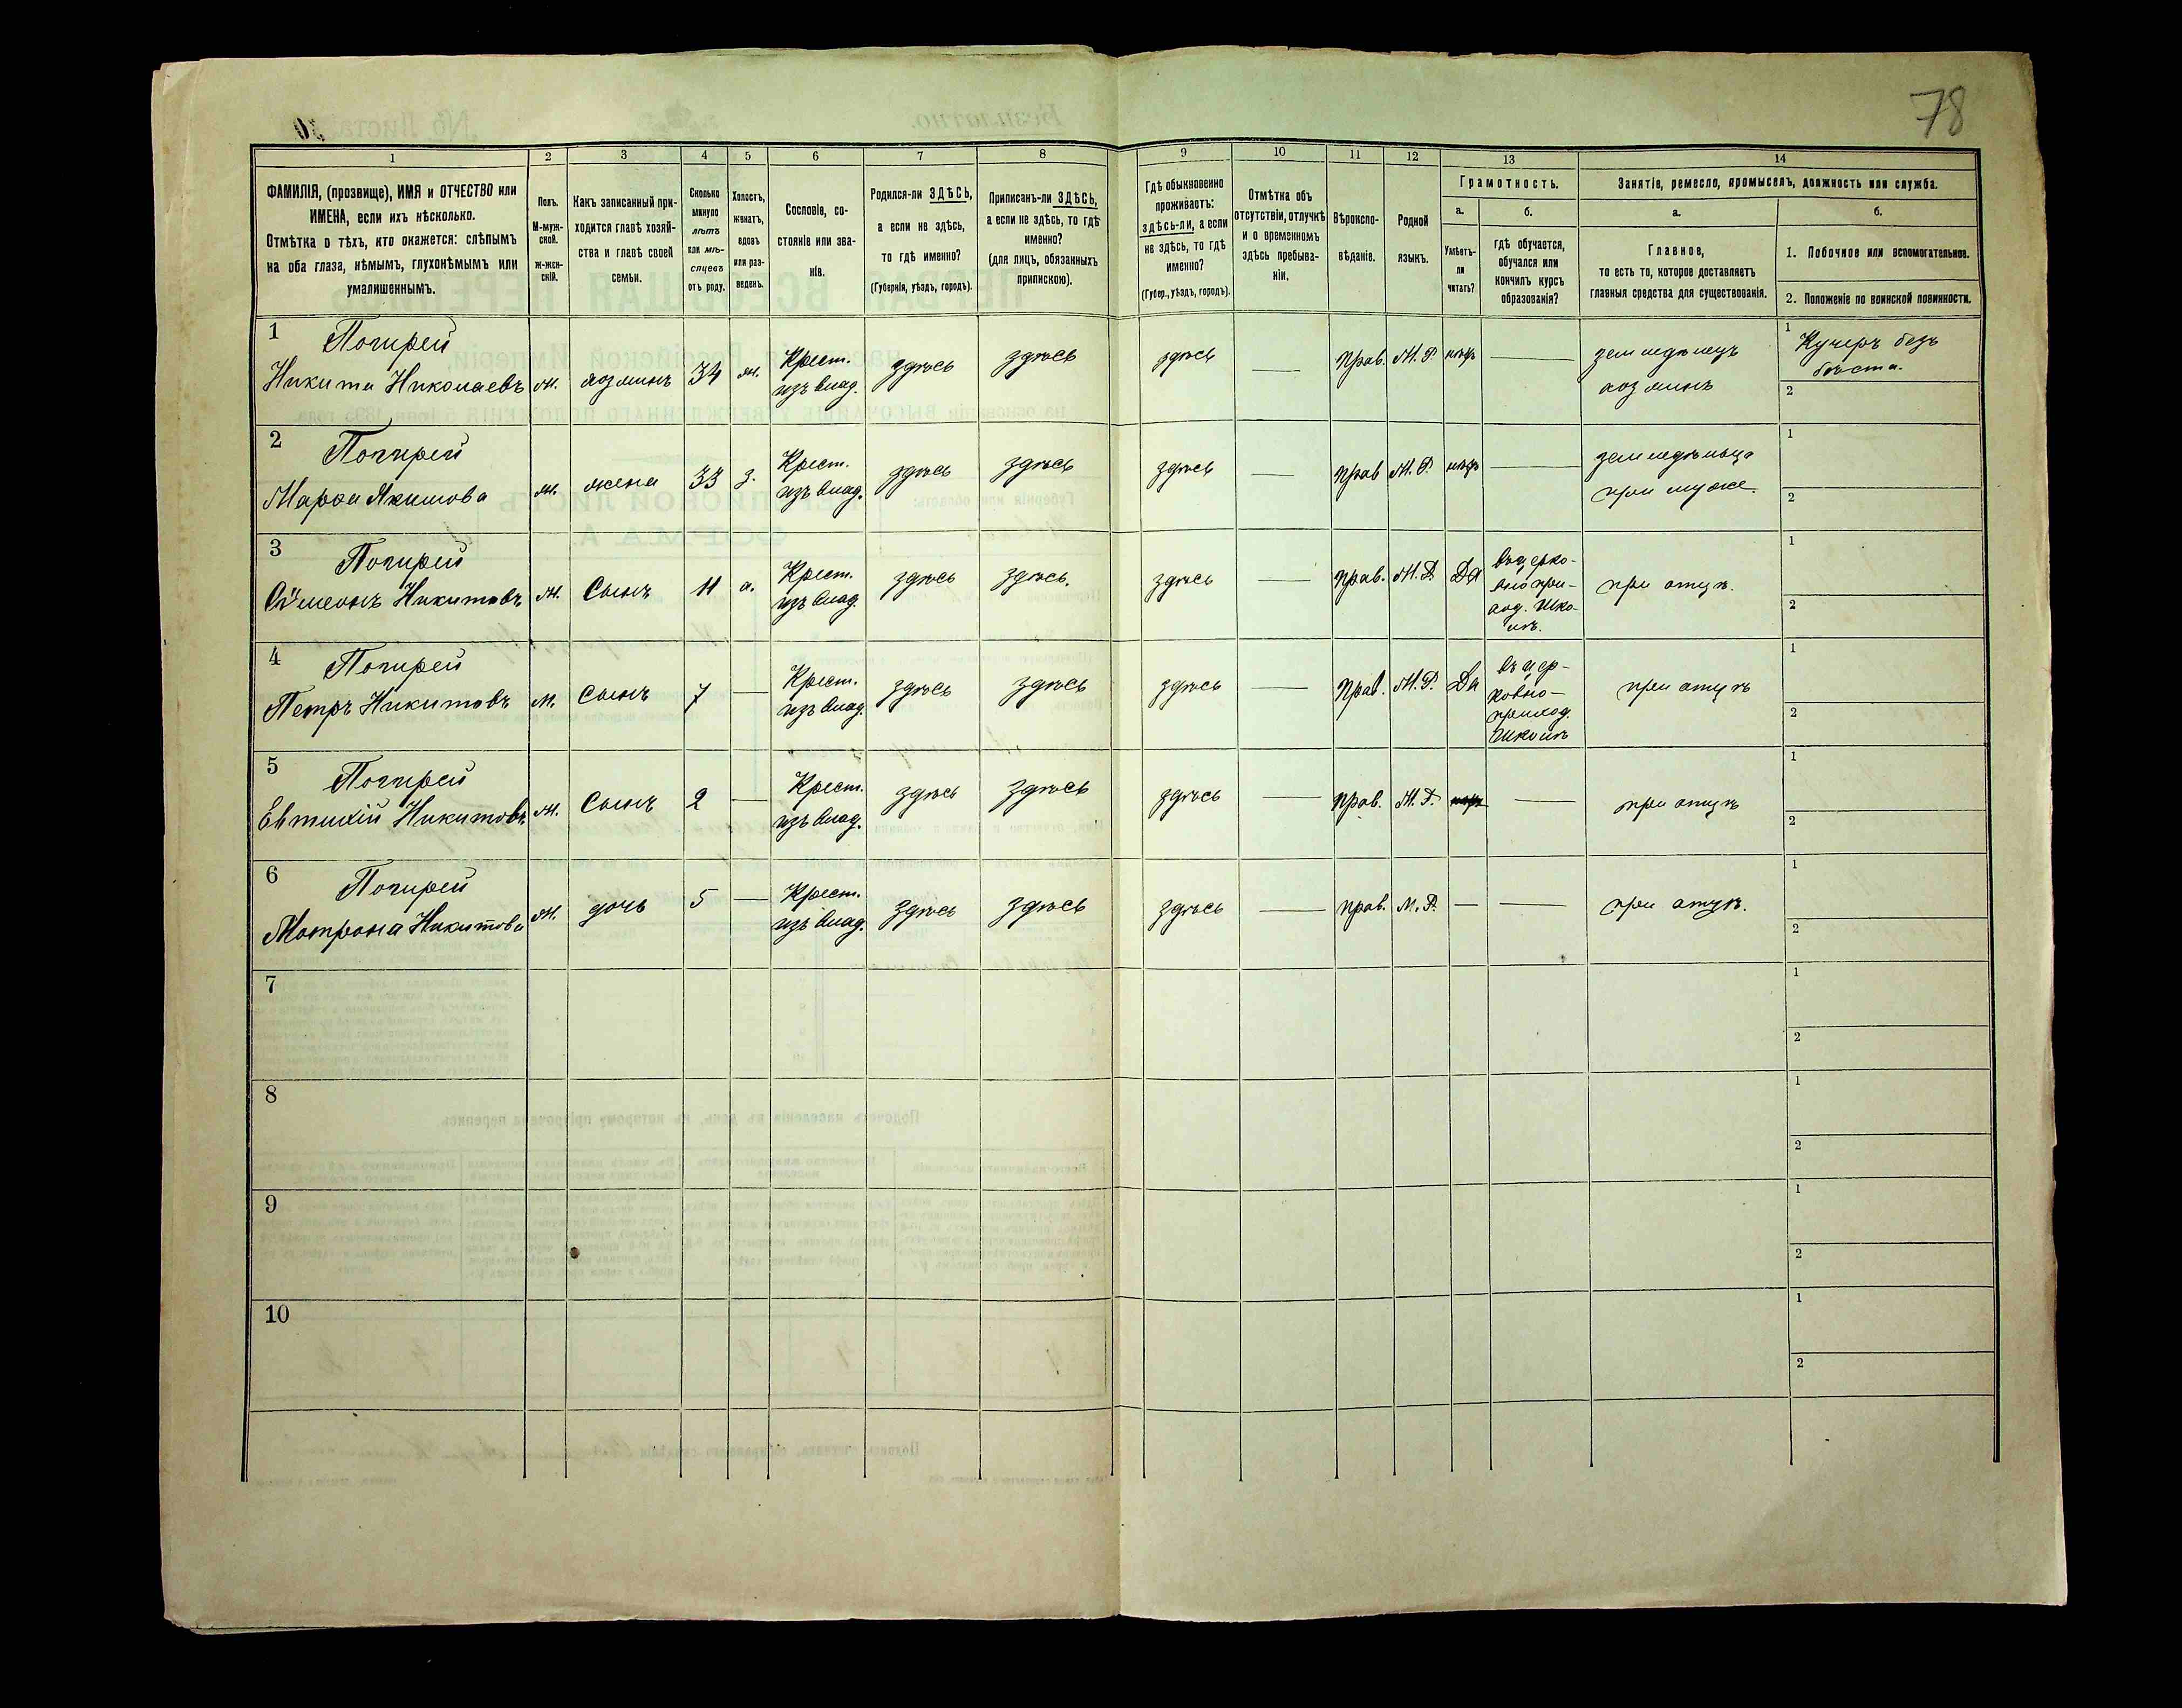 78
1 2 3 4 5 6 7 8 9 10 11 12 13 14
ФАМИЛІЯ, (прозвище), ИМЯ и ОТЧЕСТВО или
ИМЕНА, если ихъ нѣсколько.
Отмѣтка о тѣхъ, кто окажется: слѣпымъ
на оба глаза, нѣмымъ, глухонѣмымъ или
умалишеннымъ.
Полъ.
М-муж-
ской.
Ж-жен-
скій.
Какъ записанный при-
ходится главѣ хозяй-
ства и главѣ своей
семьи.
Сколько
минуло
лѣтъ
или мѣ-
сяцевъ
отъ роду.
Холостъ,
женатъ,
вдовъ
или раз-
веденъ.
Сословіе, со-
стояніе или зва-
ніе.
Родился-ли ЗДѢСЬ,
а если не здѣсь,
то гдѣ именно?
(Губернія, уѣздъ, городъ).
Приписанъ-ли ЗДѢСЬ,
а если не здѣсь, то гдѣ
именно?
(для лицъ, обязанныхъ
припискою).
Гдѣ обыкновенно
проживаетъ:
здѣсь-ли, а если
не здѣсь, то гдѣ
именно?
(Губер., уѣздъ, городъ).
Отмѣтка объ
отсутствіи, отлучкѣ
и о временномъ
здѣсь пребыва-
ніи.
Вѣроиспо-
вѣданіе.
Родной
языкъ.
Грамотность.
а.
Умѣетъ-
ли
читать?
б.
гдѣ обучается,
обучался или
кончилъ курсъ
образованія?
Занятіе, ремесло, промыселъ, должность или служба.
а.
Главное,
то есть то, которое доставляетъ
главныя средства для существованія.
б.
1. Побочное или вспомогательное.
2. Положеніе по воинской повинности.
1 Погирей
Никита Николаевъ м. хозяинъ 34 ж. Крест. изъ влад. здѣсь здѣсь здѣсь — прав. М. Р. нѣтъ — земледѣлецъ хозяинъ
1 Кучеръ безъ
мѣста.
2
2 Погирей
Марфа Якимова ж. жена 33 з. Крест. изъ влад. здѣсь здѣсь здѣсь — прав М. Р. нѣтъ — земледѣлица при мужѣ.
1
2
3 Погирей
Сѵмеонъ Никитовъ м. Сынъ 11 х. Крест. изъ влад. здѣсь здѣсь. здѣсь — прав. М. Р. Да въ церко- вно при- ход. шко- лѣ. при отцѣ.
1
2
4 Погирей
Петръ Никитовъ м. Сынъ 7 — Крест. изъ влад. здѣсь здѣсь здѣсь — прав. М. Р. Да въ цер- ковно- приход. школѣ при отцѣ
1
2
5 Погирей
Евтихій Никитовъ м. Сынъ 2 — Крест. изъ влад. здѣсь здѣсь здѣсь — прав. М. Р. — при отцѣ
1
2
6 Погирей
Мотрона Никитова ж. дочь 5 — Крест. изъ влад. здѣсь здѣсь здѣсь — прав. М. Р. — — при отцѣ.
1
2
7
1
2
8
1
2
9
1
2
10
1
2